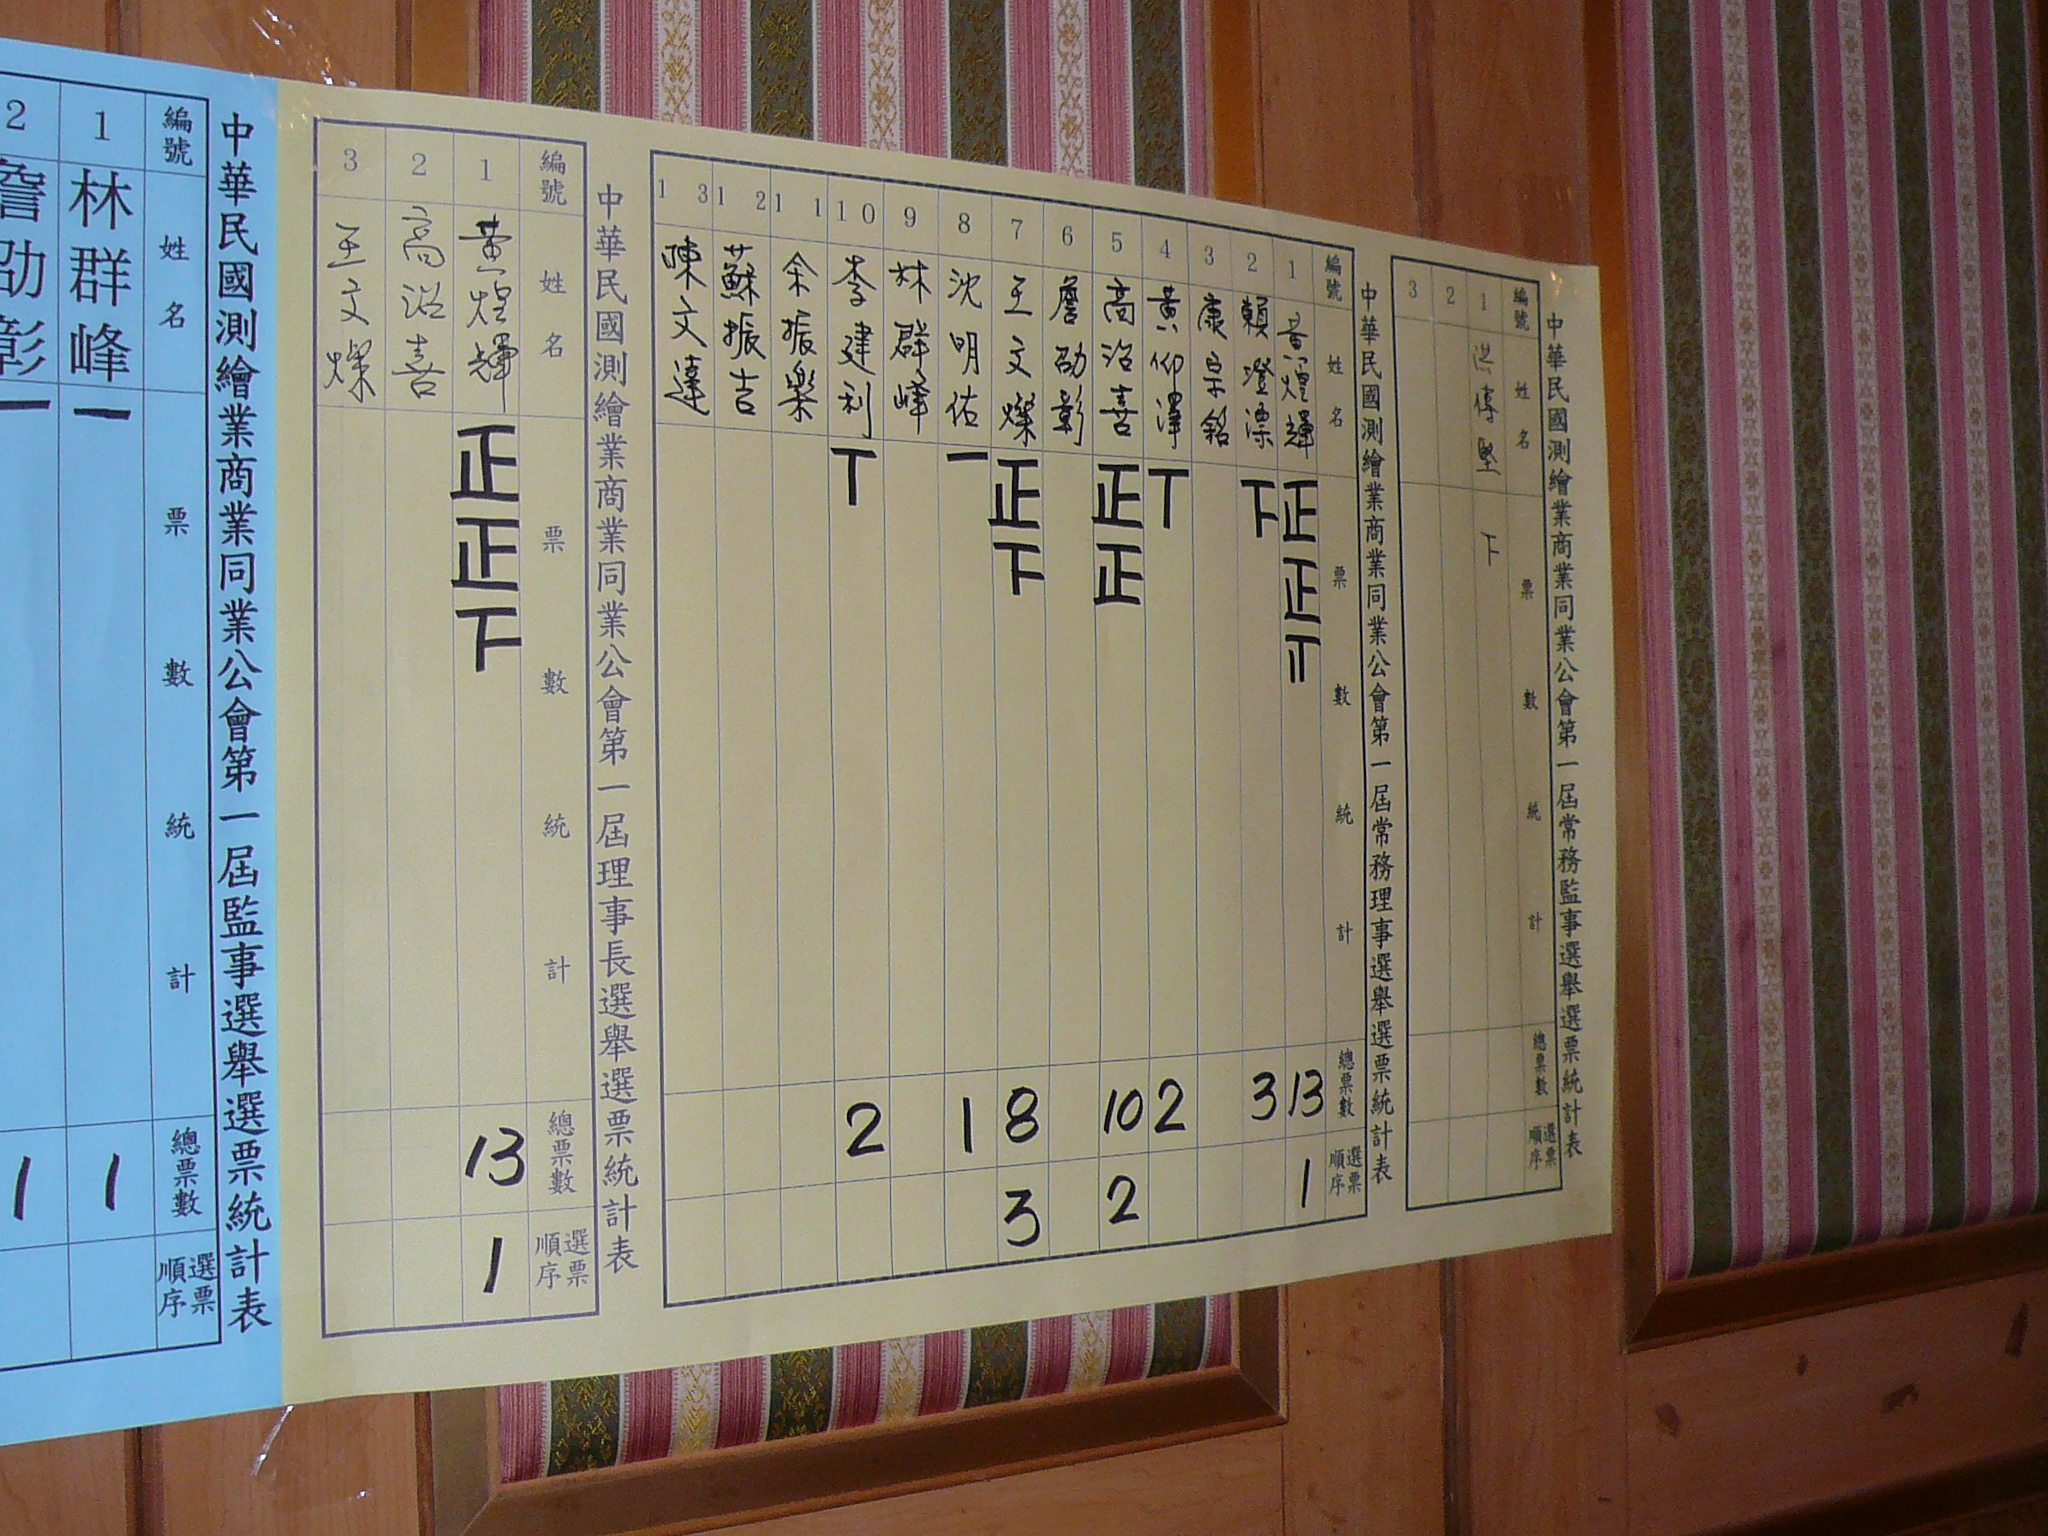 中華民國測繪業商業同業公會第一屆常務監事選舉選票統計表
編號 姓名 票數統計 總票數 選票順序
1 洪傳堅 下
2
3
中華民國測繪業商業同業公會第一屆常務理事選舉選票統計表
編號 姓名 票數統計 總票數 選票順序
1 黃煌輝 正正 13 1
2 賴澄漂 下 3
3 康宗銘
4 黃仰澤 丅 2
5 高治喜 正正 10 2
6 詹劭彰
7 王文燦 正下 8 3
8 沈明佑 一 1
9 林群峰
10 李建利 丅 2
11 余振樂
12 蘇振吉
13 陳文達
中華民國測繪業商業同業公會第一屆理事長選舉選票統計表
編號 姓名 票數統計 總票數 選票順序
1 黃煌輝 正正下 13 1
2 高治喜
3 王文燦
中華民國測繪業商業同業公會第一屆監事選舉選票統計表
編號 姓名 票數統計 總票數 選票順序
1 林群峰 一 1
2 詹劭彰 一 1